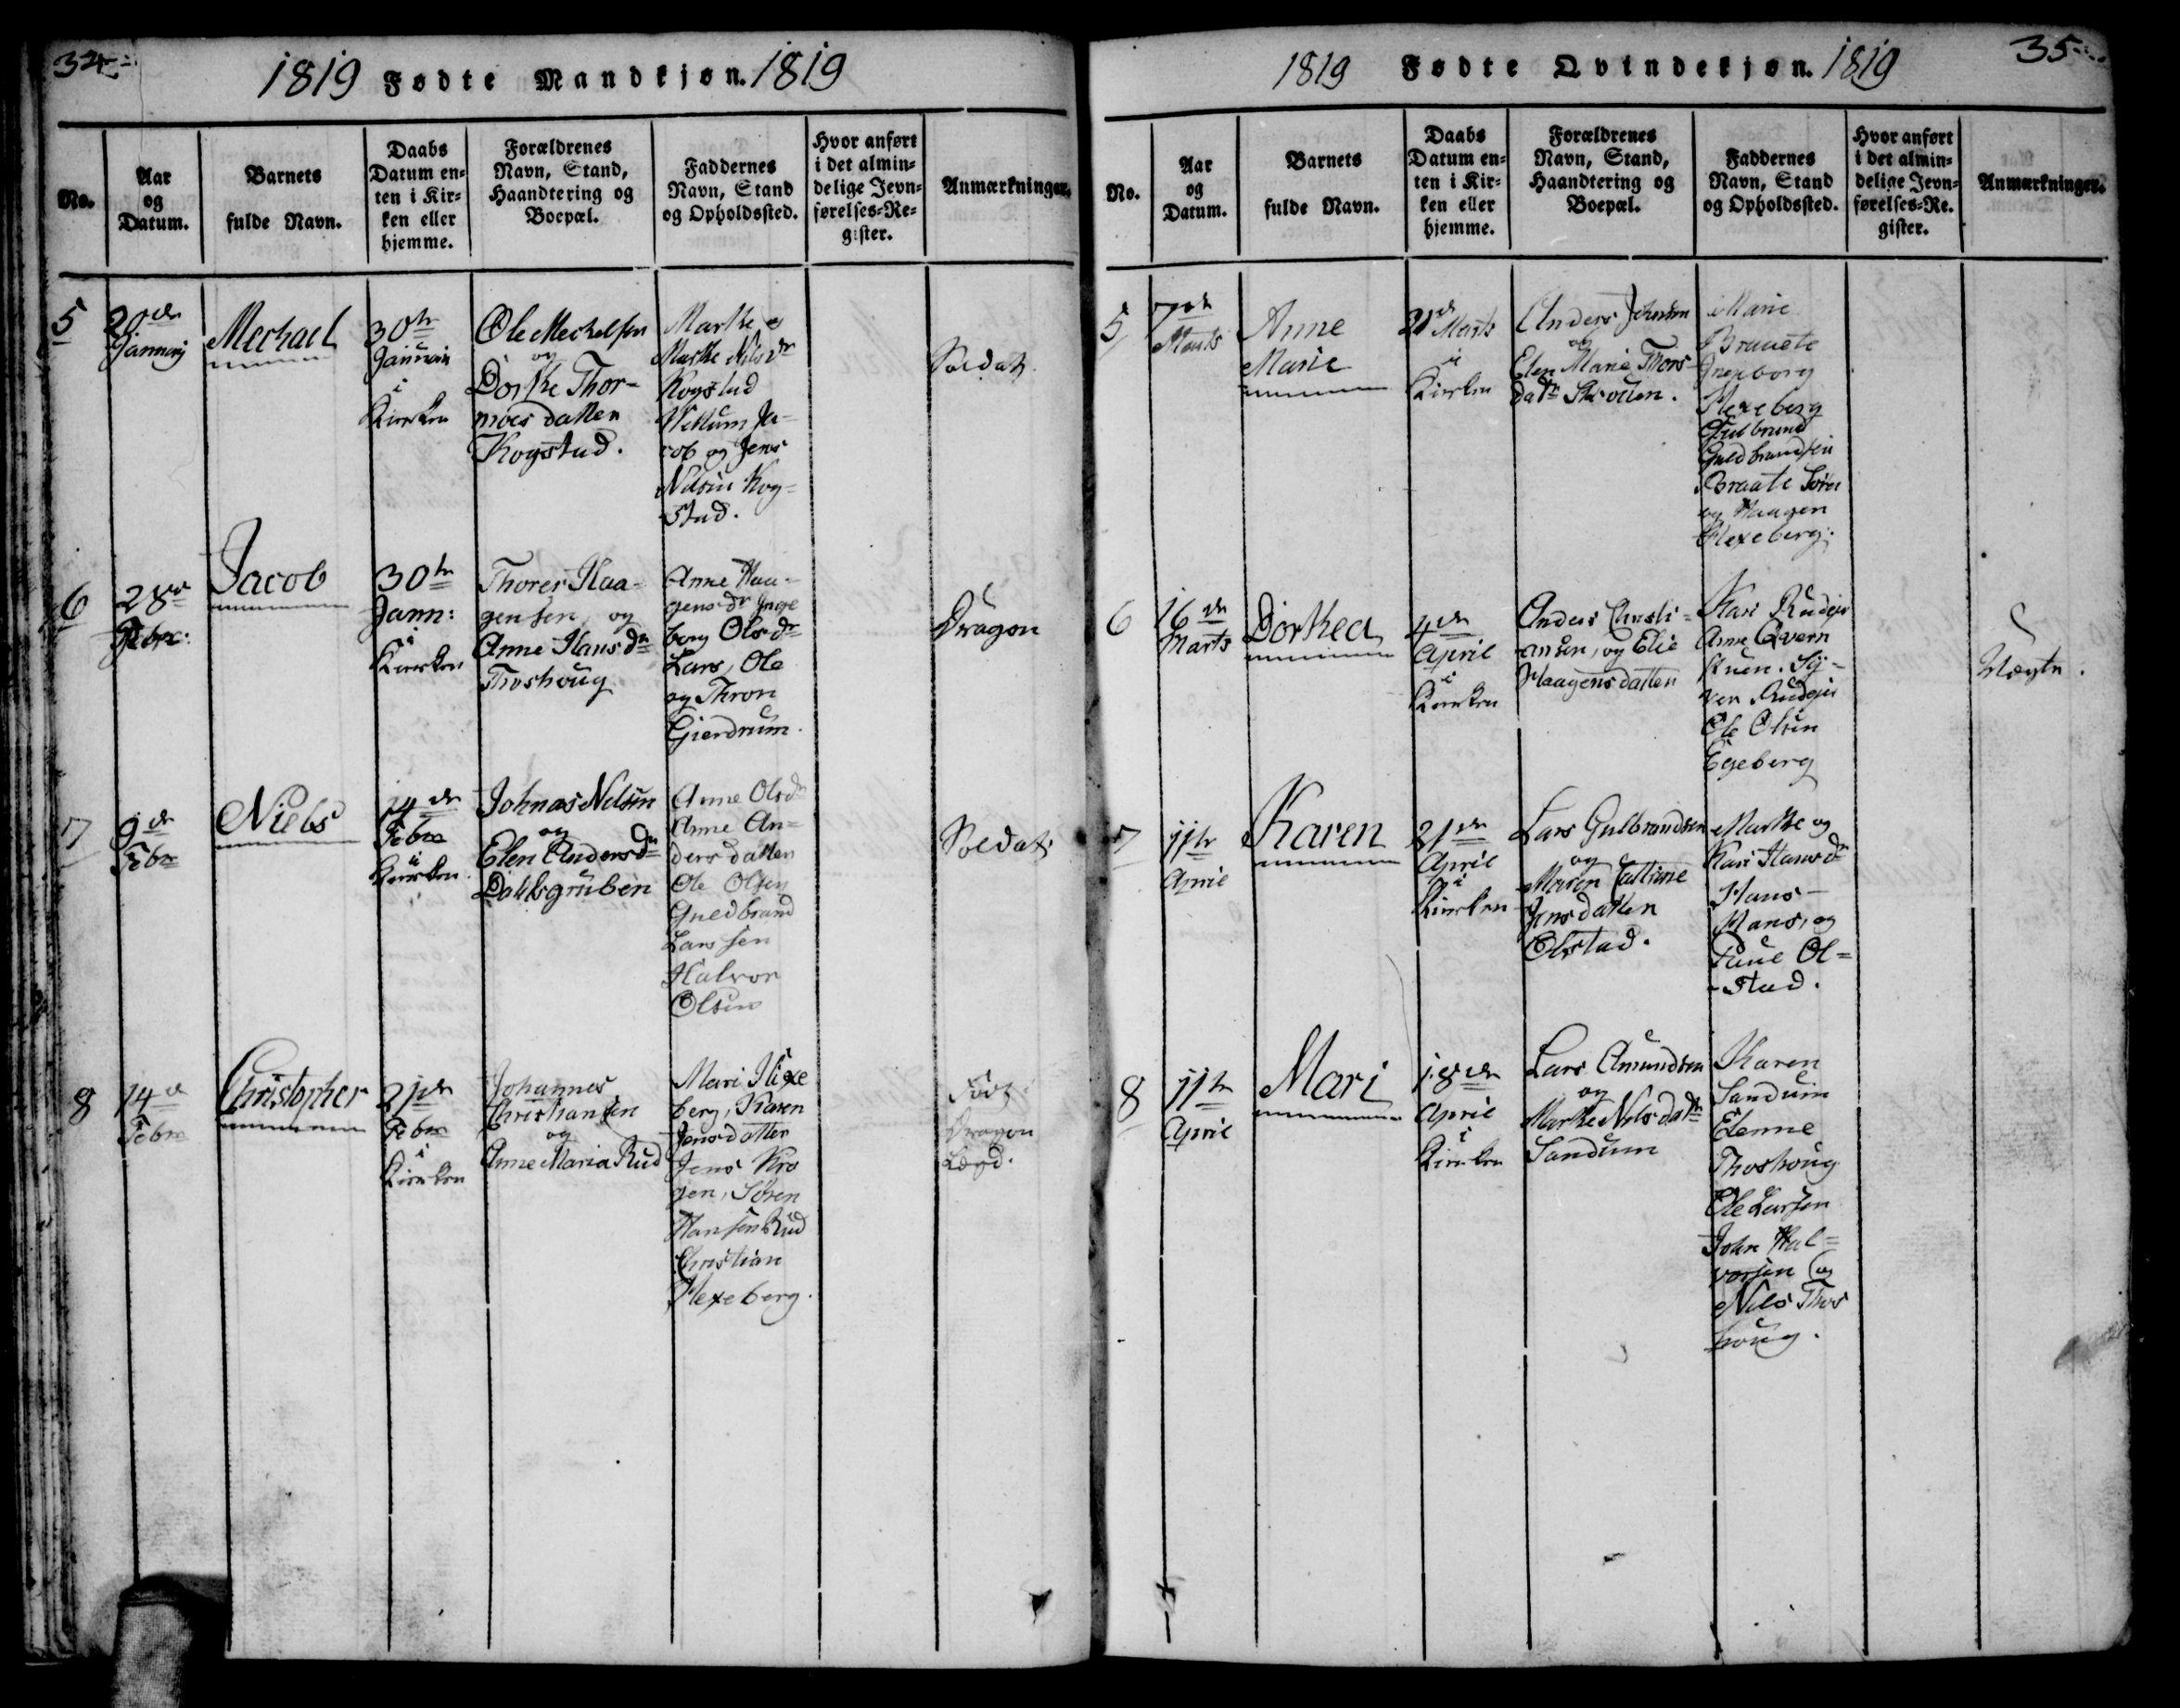 34
1819 Fødte Mandkjøn. 1819
No.
Aar
og
Datum.
Barnets
fulde Navn.
Daabs
Datum en-
ten i Kir-
ken eller
hjemme.
Forældrenes
Navn, Stand,
Haandtering og
Boepæl.
Faddernes
Navn, Stand
og Opholdssted.
Hvor anført
i det almin-
delige Jevn-
førelses-Re-
gister.
Anmærkninger.
5
20de
Januarij
Mechael
30te
Januari
i
Kierken
Ole Mechelsen
og
Dorthe Thor-
moes datter
Kogstad.
Marthe o
Marthe Nilsdr
Kogstad
Willum Ja-
cob og Jens
Nilsen Kog-
stad.
Soldat
6
28de
Febr:
Jacob
30te
Jann:
i
Kierken
Thorer Haa-
gensen, og
Anne Hansdr
Throshoug
Anne Haa-
gensdr Inge
borg Olsdr
Lars, Ole
og Thron
Gierdrum.
Dragon
7
9de
Febr
Niels
14de
Febr
i
Kierken.
Johnas Nilsen
og
Elen Andersdr
Dahlsgruben
Anne Olsdr
Anne An-
ders datter
Ole Olsen
Guldbrand
Larssen
Halvor
Olsen
Soldat
8
14de
Febr
Christopher
21de
Febr
i
Kierken
Johannes
Christiansen
og
Anne Maria Rud
Mari Hexe
berg, Karen
Jensdatter
Jens Kro
gen, Søren
Hansen Rud
Christian
Hexeberg.
Født
Dragon
Lægd.
35
1819 Fødte Qvindekjøn. 1819
No.
Aar
og
Datum.
Barnets
fulde Navn.
Daabs
Datum en-
ten i Kir-
ken eller
hjemme.
Forældrenes
Navn, Stand,
Haandtering og
Boepæl.
Faddernes
Navn, Stand
og Opholdssted.
Hvor anført
i det almin-
delige Jevn-
førelses-Re-
gister.
Anmærkninger.
5
7de
Marts
Anne
Marie
21de Marts
i
Kierken
Anders Johnsen
og
Elen Marie Thors-
datr
Marie
Braate
Ingeborg
Hexeberg
Gulbrand
Guldbrandsen
Braate Søren
og Haagen
Hexeberg.
6
16de
Marts
Dorthea
4de
April
i
Kierken
Anders Christi-
ansen, og Elie
Haagensdatter
Kari Rudejer
Anne Qvern
stuen. Sy-
ver Rudejer
Ole Olsen
Egeberg
7
11te
April
Karen
21de
April
i
Kierken
Lars Gulbrandsen
og
Maren Cathrine
Jensdatter
Olstad.
Marthe og
Kari Hansdr
Hans-
Hans, og
Paul Ol-
stad.
8
11te
April
Mari
18de
April
i
Kierken
Lars Amundsen
og
Marthe Nilsdatr
Sandum
Karen
Sandum
Elenne
Throshoug
Ole Larsen
John Hal-
vorsen og
Nils Thros
houg.